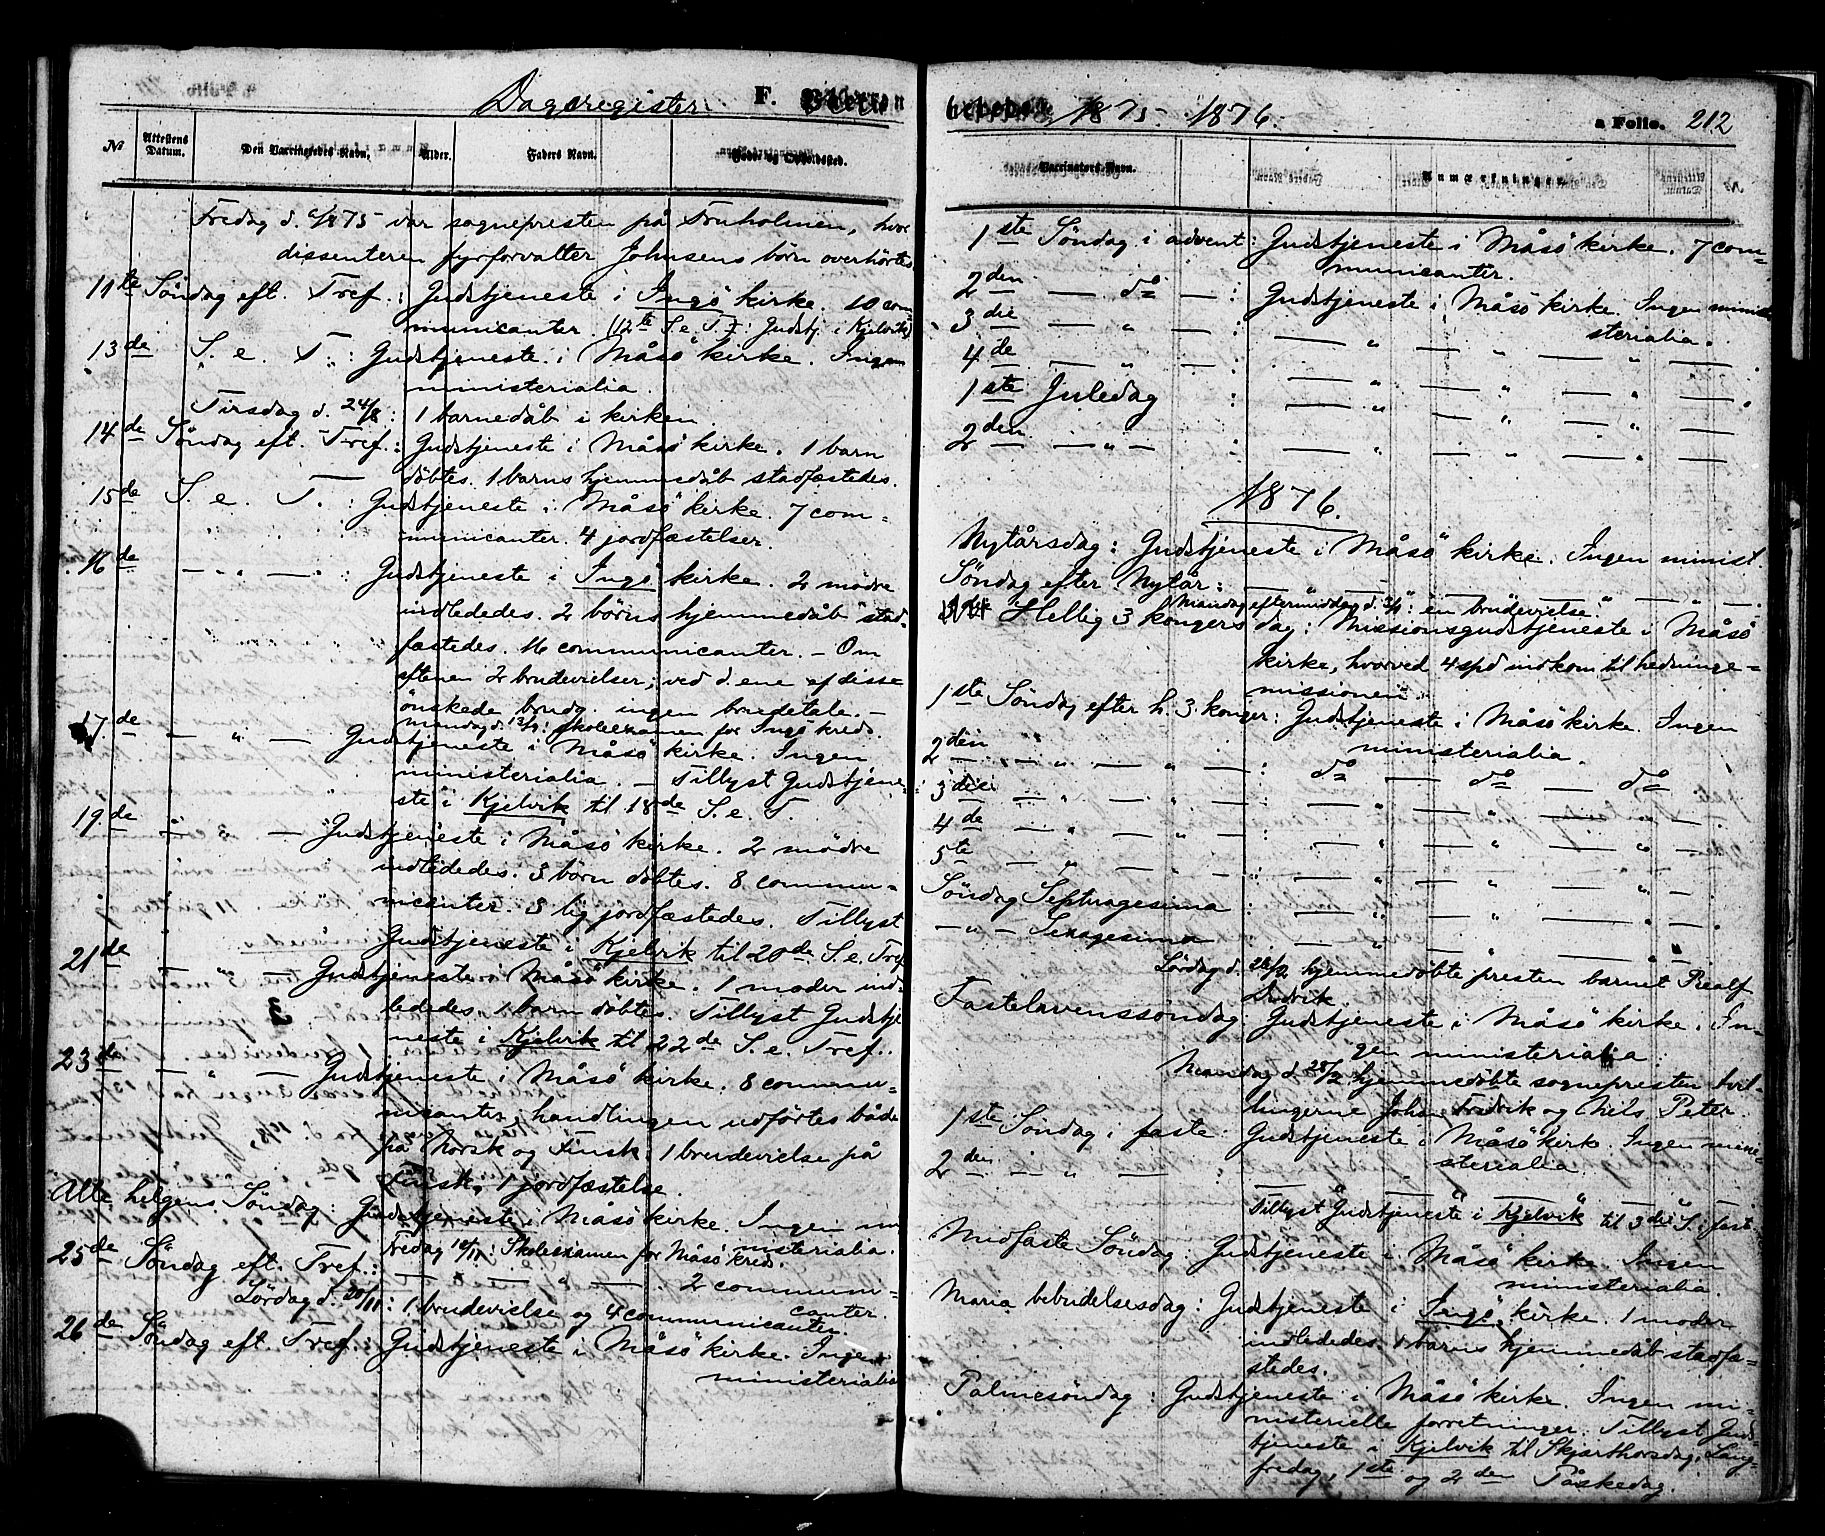 Dagsregister. F.
№ Attestens Datum. Den Vaccineredes Navn. Alder. Faders Navn. Føde- og Opholdssted.
Fredag d. 6/8 1875 var sognepresten på Fruholmen, hvor
dissenteren fyrforvalter Johnsens børn overhørtes.
11te Søndag eft. Tref.: Gudstjeneste i Ingø kirke. 10 com-
municanter. (12te S. e. T.: Gudstj. i Kjelvik)
13de S. e. T.: Gudstjeneste i Måsø kirke. Ingen
ministerialia.
Tirsdag d. 24/8: 1 barnedåb i kirken
14de Søndag eft. Tref.: Gudstjeneste i Måsø kirke. 1 barn
døbtes. 1 barns hjemmedåb stadfæstedes.
15de S. e. T.: Gudstjeneste i Måsø kirke. 7 com-
municanter. 4 jordfæstelser.
16de — „ — : Gudstjeneste i Ingø kirke. 2 mødre
indlededes. 2 børns hjemmedåb stad-
fæstedes. 16 communicanter. — Om
aftenen 2 brudevielser; ved d. ene af disse
ønskede brudg. ingen brudetale. —
mandag d. 13/9: Skoleexamen for Ingø kreds.
17de — „ — Gudstjeneste i Måsø kirke. Ingen
ministerialia. — Tillyst Gudstjene-
ste i Kjelvik til 18de S. e. T.
19de „ — Gudstjeneste i Måsø kirke. 2 mødre
indlededes. 3 børn døbtes. 8 commu-
nicanter. 3 lig jordfæstedes. Tillyst
Gudstjeneste i Kjelvik til 20de S. e. Tref.
21de — „ — Gudstjeneste i Måsø kirke. 1 moder ind-
lededes, 1 barn døbtes. Tillyst Gudstje-
neste i Kjelvik til 22de S. e. Tref.
23de — „ — Gudstjeneste i Måsø kirke. 8 commu-
nicanter, handlingen udførtes både
på Norsk og Finsk. 1 brudevielse på
Finsk; 1 jordfæstelse.
Alle helgens Søndag: Gudstjeneste i Måsø kirke. Ingen mi-
nisterialia.
Fredag 12/11: Skoleexamen for Måsø kreds.
25de Søndag eft. Tref.: — — „ — 2 commum-
canter.
Lørdag d. 20/11: 1 brudevielse og 4 communicanter.
26de Søndag eft. Tref.: Gudstjeneste i Måsø kirke. Ingen
ministerialia
1875. 1876. a Folio. 212
Vaccinators Navn. Anmærkninger.
1ste Søndag i advent: Gudstjeneste i Måsø kirke. 7 com-
municanter.
2den — do — : Gudstjeneste i Måsø kirke. Ingen mini-
sterialia.
3die — „ — : — „ — „ — „ —
4de — „ — : — „ — „ — „ — .
1ste Juledag : — „ — „ — „ — .
2den — „ — : — „ — „ — „ —
1876.
Nytårsdag: Gudstjeneste i Måsø kirke. Ingen minist.
Søndag efter Nytår: — „ — „ — „ — .
Mandag eftermiddag d. 3/1: en brudevielse.
Hellig 3 kongers dag: Missionsgudstjeneste i Måsø
kirke, hvorved 4 spd indkom til hedninge-
missionen.
1ste Søndag efter h. 3 konger: Gudstjeneste i Måsø kirke. Ingen
ministerialia.
2den — „ — „ — : do — do — do
3die — „ — „ — : — „ — „ — „ — .
4de — „ — „ — : — „ — „ — „ — .
5te — „ — : — „ — „ — „ — .
Søndag Septuagesima — „ — „ — „ — .
— „ — Sexagesima — „ — „ — „ —
Lørdag d. 26/2 hjemmedøbte presten barnet Realf
Ludvik.
Fastelavenssøndag: Gudstjeneste i Måsø kirke. In-
gen ministerialia
Mandag d. 28/2 hjemmedøbte sognepresten tvil-
lingerne Johan Fredrik og Nils Peter
1ste Søndag i faste Gudstjeneste i Måsø kirk. Ingen mini-
sterialia.
2den — „ — : — „ — „ — „ —
Tillyst Gudstjeneste i Kjelvik til 3die S. i fast.
Midfaste Søndag: Gudstjeneste i Måsø kirke. Ingen
ministerialia.
Maria bebudelsesdag: Gudstjeneste i Ingø kirke. 1 moder
indlededes. 1 barns hjemmedåb stadfæ-
stedes.
Palmesøndag: Gudstjeneste i Måsø kirke. Ingen mi-
nisterielle forretninger. Tillyst Guds-
tjeneste i Kjelvik til Skjærthorsdag, Lang-
fredag, 1ste og 2den Påskedag.